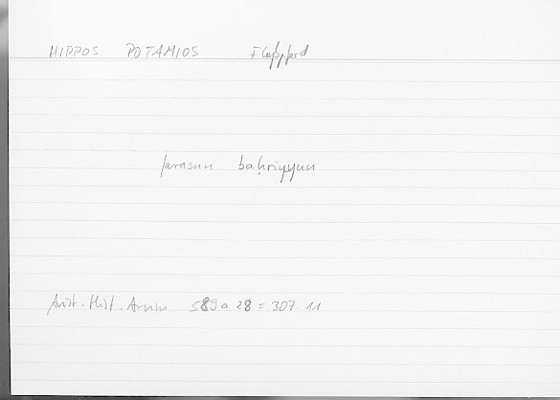 HIPPOS POTAMIOS Flußpferd
farasun baḥriyyun
Arist. Hist. Anim 589 a 28 = 307 11